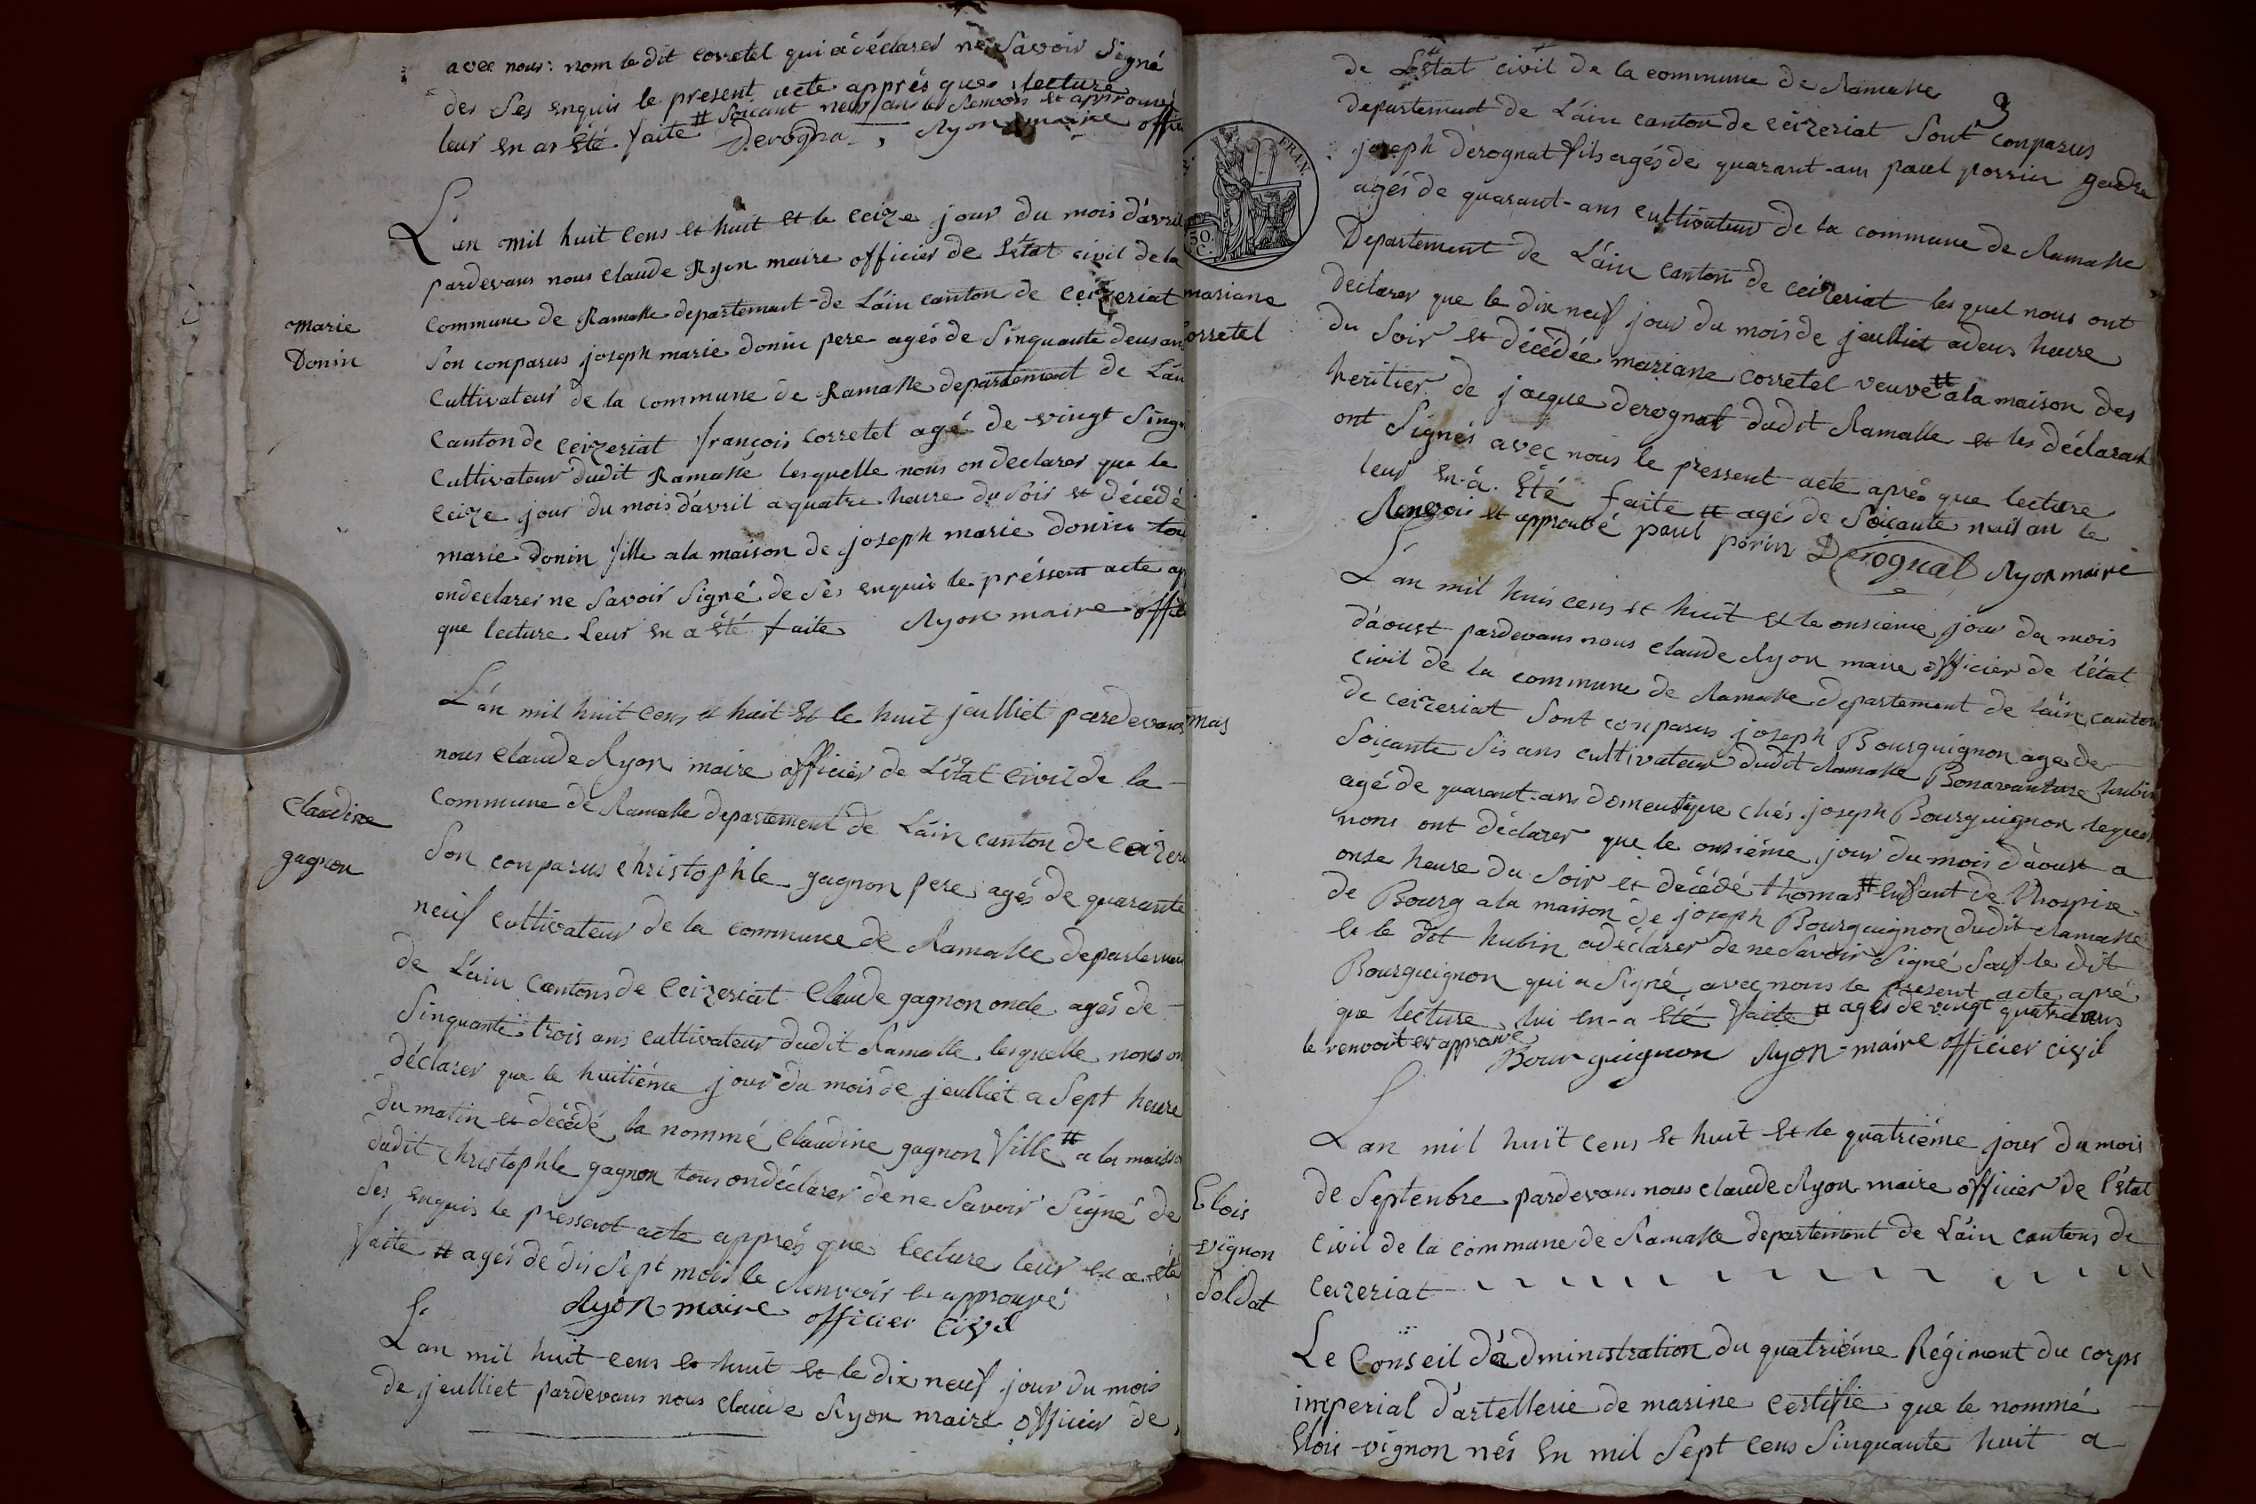 avec nous: nom le dit corretel qui a déclarer ne Savoir Signé
des Ses enquis le present acte apprés que lecture
leur en as été faite # Soicant neuf ans le Renvois et approuvé
Derognat, Ryon maire offi
L'an mil huit cens et huit et le ceize jour du mois d'avril
pardevans nous claude Ryon maire officier de Létat civil de la
commune de Ramasse departement de Láin canton de ceizeriat
marie
Donin
Son conparus joseph marie donin pere agés de Sinquante deus ans
cultivateur de la commune de Ramasse departement de Láin
canton de ceizeriat françois corretel agé de vingt Sinq
cultivateur dudit Ramasse lesquelle nous on declarer que le
ceize jour du mois d'avril a quatre heure du Soir et décédé
marie donin fille a la maison de joseph marie donin tou
ondeclarer ne Savoir Signé de Ses enquis le préssent acte ap
que lecture leur en a été faite Ryon maire offi
L'an mil huit cens et huit et le huit jeulliet pardevans
nous claude Ryon maire officier de Létat civil de la
claudine
gagnon
commune de Ramasse departement de Láin canton de ceizeri
Son conparus christophle gagnon pere agés de quarante
neuf cultivateur de la commune de Ramasse departemen
de Láin cantons de ceizeriat Claude gagnon oncle agés de
Sinquante trois ans cultivateur dudit Ramasse lesquelle nous on
déclarer que le huitiéme jour du mois de jeulliet a Sept heure
du matin et décédé la nommé claudine gagnon fille # a la maison
dudit christophle gagnon tous ondéclarer de ne Savoir Signé de
Ses enquis le pressent acte apprés que lecture leur en a été
faite # agés de dis Sept mois le Renvoir et approuvé
Ryon maire officier civil
L'an mil huit cens et huit et le dix neuf jour du mois
de jeulliet pardevans nous claude Ryon maire officier de
3
de Létat civil de la commune de Ramasse
departement de Láin canton de ceizeriat Sont conparus
joseph dérognat fils agés de quarant-ans paul porrin gendre
agés de quarant-ans cultivateur de la commune de Ramasse
FRAN
50.
C.
Departement de Láin canton de ceizeriat les quel nous ont
mariane
corretel
declarer que le dix neuf jour du mois de jeulliet a deus heure
du Soir et décédée mariane corretel veuve # a la maison des
heritier de jacque derognat dudit Ramasse et les déclarant
ont Signés avec nous le pressent acte aprés que lecture
leur en-a été faite # agés de Soicante neuf an le
Renvois et approuvé paul porin Derognat Ryon maire
L'an mil huis cens et huit et le onsieme jour du mois
d'áoust pardevans nous claude Ryon maire officier de l'état
mas
civil de la commune de Ramasse departement de láin canton
de ceizeriat Sont conparus joseph Bourguignon age de
Soiçante Sis ans cultivateur dudit Ramasse Bonavanture hubin
agé de quarant-ans domeustique chés joseph Bourguignon lequel
nous ont déclarer que le onsiéme jour du mois d'áoust a
onse heure du Soir et décédé thomas # Enfant de l'hospice
de Bourg a la maison de joseph Bourguignon dudit Ramasse
et le dit hubin adéclarer de ne Savoir Signé Sauf le dit
Bourguignon qui a Signé avec nous le present acte apré
que lecture lui en-a été faite # agés de vingt quatre ans
le renvoit et approuvé
Bourguignon Ryon-maire officier civil
L'an mil huit cens et huit et le quatriéme jour du mois
de Septenbre pardevans nous claude Ryon maire officier de l'état
Elois
vignon
Soldat
civil de la commune de Ramasse departement de Láin cantons de
ceizeriat
Le Conseil d'ádministration du quatriéme Régiment du corps
imperial d'artellerie de marine certifie que le nommé
Elois vignon nés en mil Sept cens Sinquante huit a